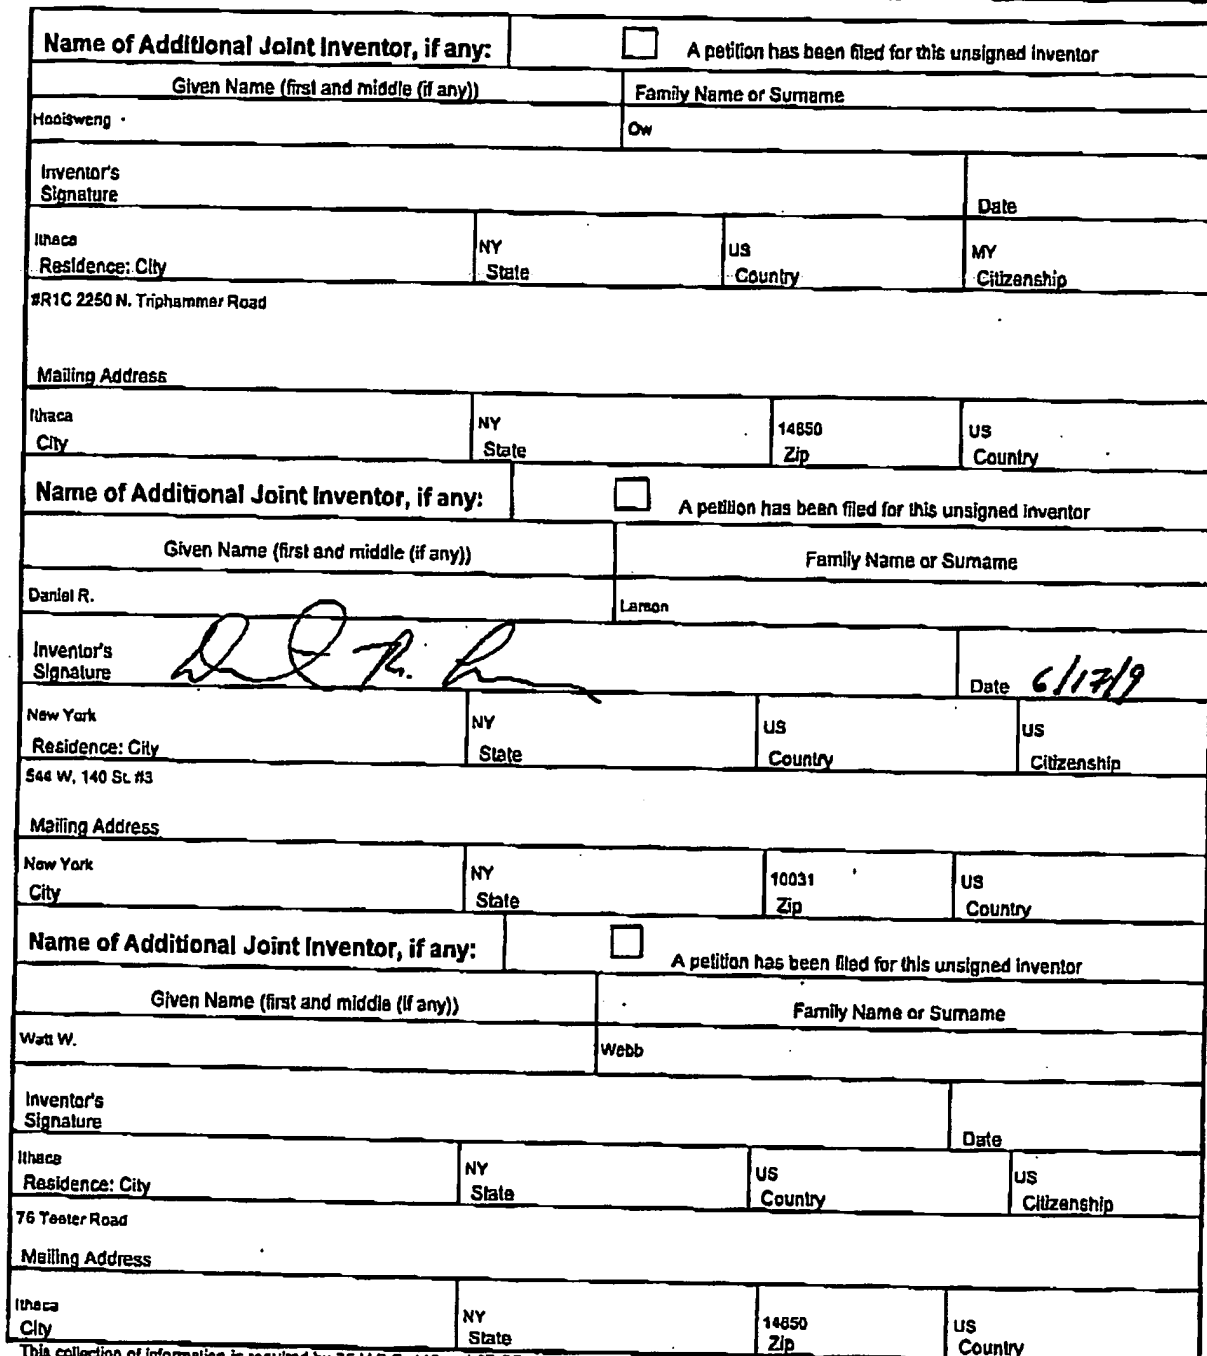 Name of Additional Joint Inventor, if any: A petition has been filed for this unsigned inventor
Given Name (first and middle (if any)) Family Name or Surname
Hooisweng Ow
Inventor's
Signature Date
Ithaca NY US MY
Residence: City State Country Citizenship
#R1C 2250 N. Triphammer Road
Mailing Address
Ithaca NY 14850 US
City State Zip Country
Name of Additional Joint Inventor, if any: A petition has been filed for this unsigned inventor
Given Name (first and middle (if any)) Family Name or Surname
Daniel R. Larson
Inventor's
Signature Date 6/17/9
New York NY US US
Residence: City State Country Citizenship
544 W, 140 St. #3
Mailing Address
New York NY 10031 US
City State Zip Country
Name of Additional Joint Inventor, if any: A petition has been filed for this unsigned inventor
Given Name (first and middle (if any)) Family Name or Surname
Watt W. Webb
Inventor's
Signature Date
Ithaca NY US US
Residence: City State Country Citizenship
76 Teeter Road
Mailing Address
Ithaca NY 14850 US
City State Zip Country
This collection of information is required by